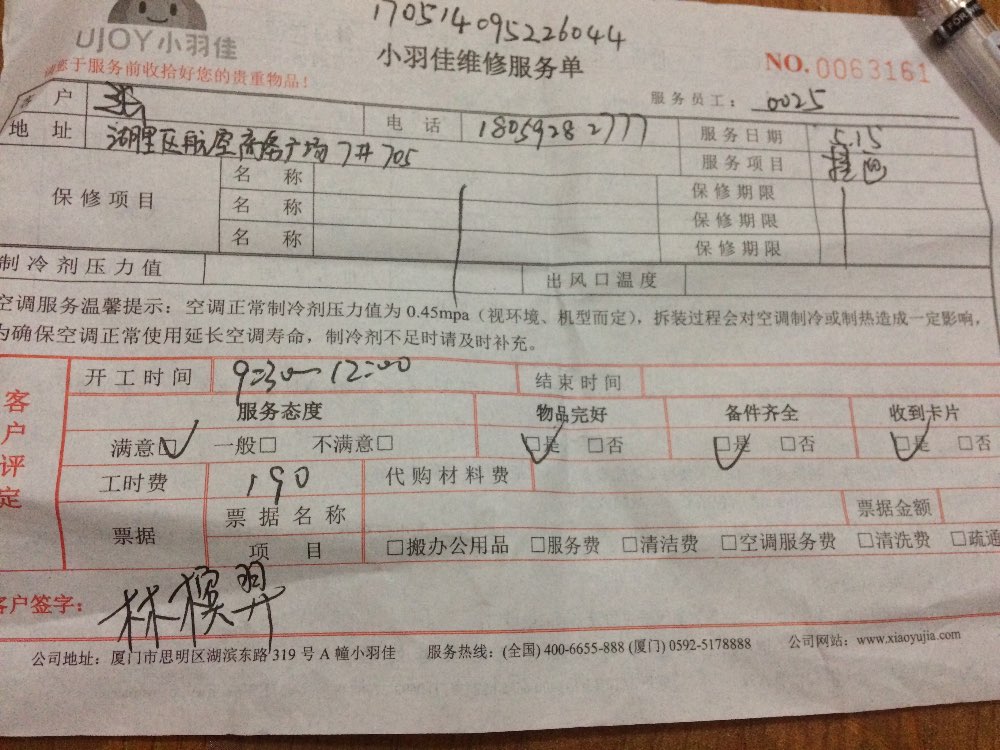 170514095226044
UJOY小羽佳
小羽佳维修服务单
NO.0063161
您于服务前收拾好您的贵重物品!
服务员工: 0025
户 电 话 18059282777 服务日期 5.15
地 址 湖里区航空商务广场7# 705 服务项目
保修项目 名 称 保修期限
名 称 保修期限
名 称 保修期限
制冷剂压力值 出风口温度
空调服务温馨提示: 空调正常制冷剂压力值为 0.45mpa (视环境、机型而定), 拆装过程会对空调制冷或制热造成一定影响,
为确保空调正常使用延长空调寿命, 制冷剂不足时请及时补充。
客户评定
开工时间 9:30—12:00 结束时间
服务态度 物品完好 备件齐全 收到卡片
满意☑ 一般□ 不满意□ ☑是 □否 ☑是 □否 ☑是 □否
工时费 190 代购材料费
票据 票据名称 票据金额
项 目 □搬办公用品 □服务费 □清洁费 □空调服务费 □清洗费 □疏通
客户签字: 林
公司地址: 厦门市思明区湖滨东路 319 号 A 幢小羽佳 服务热线: (全国) 400-6655-888 (厦门) 0592-5178888 公司网站: www.xiaoyujia.com
FOR